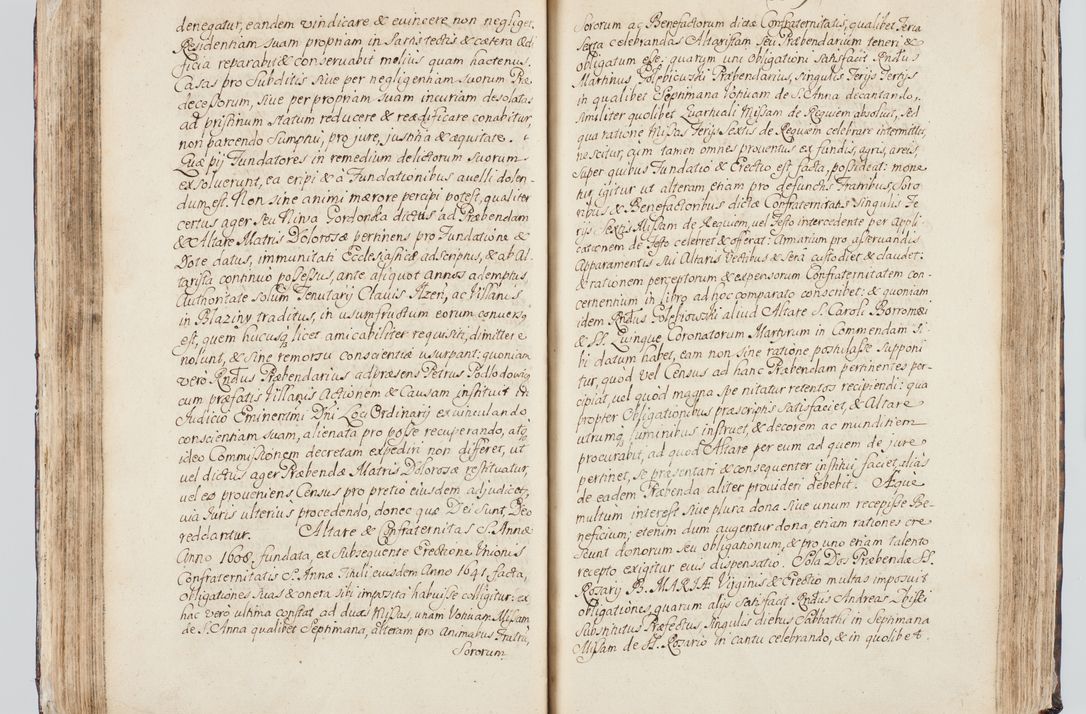 denegatur, eandem vindicare & evincere non negliget.
Residentiam suam propriam in sartis tectis & cætera ædi
ficia reparabit & conservabit melius quam hactenus.
Casas pro Subditis sive per negligentiam suorum Præ
decessorum, sive per propriam suam incuriam desolatas
ad pristinum statum reducere & reædificare conabitur,
non parcendo sumptui, pro jure, justitia & æquitate.
Quæ pij Fundatores in remedium delictorum suorum
exsolverunt, ea eripi & à Fundationibus avelli dolen-
dum est. Non sine animi mærore percipi potest, qualiter
certus ager seu Niwa Gordonka dictus ad Præbendam
& Altare Matris Dolorosæ pertinens pro Fundatione &
Dote datus, immunitati Ecclesiasticæ adscriptus, & ab Al-
tarista continuò possessus, ante aliquot annos ademptus,
Authoritate solum Tenutarij Clavis Ilzen, ac Villanis
in Blaziny traditus, in usumfructum eorum conversq
est, quem hucusq licet amicabiliter requisiti, dimittere
nolunt, & sine remorsu conscientiæ usurpant: quoniam
verò Rndus Præbendarius ad præsens Petrus Podlodowsq
cum præfatis Villanis Actionem & Causam instituit in
Judicio Eminentmi Dni Loci Ordinarij exvinculando
conscientiam suam, alienata pro posse recuperando, atq
ideo Commissionem decretam expediri non differet, ut
vel dictus ager Præbendæ Matris Dolorosæ restituatur,
vel ex eo proveniens Census pro pretio eiusdem adjudicet,
via Juris ulterius procedendo, donec quæ Dei sunt, Deo
reddantur. Altare & Confraternitas S. Annæ
Anno 1608. fundata, ex subsequente Erectione Unionis
Confraternitatis S. Annæ Tituli eiusdem Anno 1641. facta,
obligationes suas & onera sibi imposita habuisse colligitur: ex
hac verò ultima constat ad duas Missas, unam Votivam Missam
de S. Anna qualibet Septimana, alteram pro Animabus Fratrũ,
Sororum
Sororum ac Benefactorum dictæ Confraternitatis, qualibet Feria
Sexta celebrandas Altaristam seu Præbendarium teneri &
obligatum esse: quarum uni obligationi satisfacit Rndus
Martinus Golebiowski Præbendarius, singulis Ferijs Tertijs
in qualibet Septimana Votivam de S. Anna decantando,
similiter quolibet Quartuali Missam de Requiem absolvit, sed
qua ratione Missas Ferijs Sextis de Requiem celebrare intermittit,
nescitur, cùm tamen omnes proventus ex fundis, agris, areis,
super quibus Fundatio & Erectio est facta, possideat: mone
tur igitur ut alteram etiam pro defunctis Fratribus, Soro
ribus & Benefactoribus dictæ Confraternitatis singulis Fe
rijs Sextis Missam de Requiem, vel Festo intercedente per appli
cationem de Festo celebret & offerat: Armarium pro asservandis
Apparamentis sui Altaris Vectibus & Serâ custodiet & claudet:
& rationem perceptorum & expensorum Confraternitatem con-
cernentium in Libro ad hoc comparato conscribet: & quoniam
idem Rndus Golebiowski aliud Altare S. Caroli Borromæi
& SS. Quinque Coronatorum Martyrum in Commendam si-
bi datum habet, eam non sine ratione postulasse supponi
tur, quòd vel Census ad hanc Præbendam pertinentes per-
cipiat, vel quòd magna spe nitatur retentos recipiendi: qua
propter Obligationibus præscriptis satisfaciet, & Altare
utrumq luminibus instruet, & decorem ac munditiem
procurabit, ad quod Altare per eum ad quem de jure
pertinet, se præsentari & consequenter institui faciet, aliàs
de eadem Præbenda aliter provideri debebit. Æque
multum interest sive plura dona sive unum recepisse Be-
neficium; etenim dum augentur dona, etiam rationes cre
scunt donorum seu obligationum, & pro uno etiam talento
recepto exigitur eius dispensatio. Sola Dos Præbendæ SS.
Rosarij B. MARIÆ Virginis & Erectio multas imposuit
obligationes, quarum alijs satisfacit Rndus Andreas
Substitutus Præfectus, singulis diebus Sabbathi in Septimana
Missam de SS. Rosario in cantu celebrando, & in quolibet